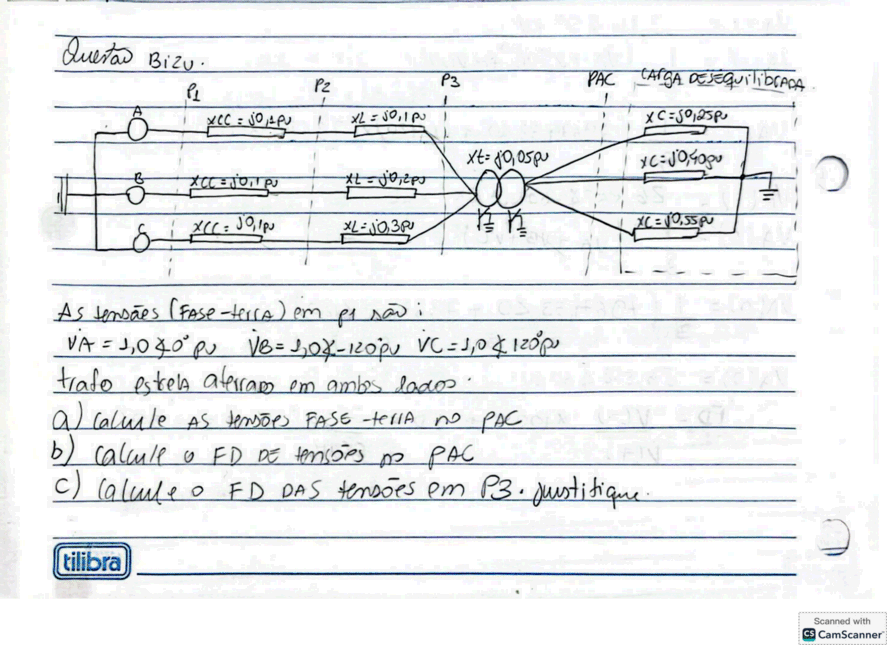 Questão Bizu.
P1 P2 P3 PAC CARGA DESEQUILIBRADA
A XCC = j0,1pu XL = j0,1pu XC = j0,25pu
Xt = j0,05pu
B XCC = j0,1pu XL = j0,2pu XC = j0,40pu
C XCC = j0,1pu XL = j0,3pu XC = j0,55pu
As tensões (FASE-terra) em p1 são:
VA = 1,0∡0° pu VB = 1,0∡-120°pu VC = 1,0∡120°pu
trafo estrela aterrado em ambos lados.
a) Calcule AS tensões FASE-terra no PAC
b) Calcule o FD DE tensões no PAC
c) Calcule o FD DAS tensões em P3. Justifique.
tilibra
Scanned with
CS CamScanner